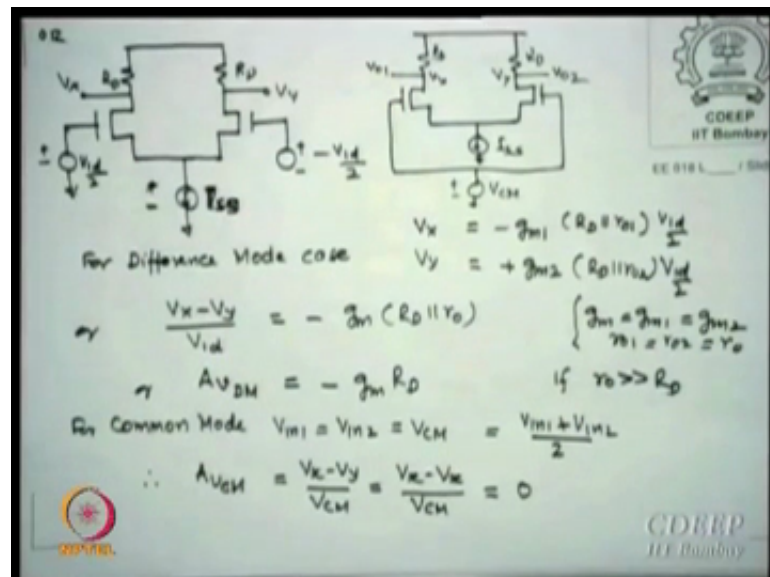 OR
R_D R_D
V_x V_y
V_id/2
- V_id/2
R_D R_D
V_01 V_x V_y V_02
V_CM
CDEEP
IIT Bombay
EE 618 L____ / Slide
V_x = - g_m1 (R_D || r_01) V_id/2
For Difference Mode case V_y = + g_m2 (R_D || r_02) V_id/2
or (V_x - V_y)/V_id = - g_m (R_D || r_0) { g_m = g_m1 = g_m2
r_01 = r_02 = r_0
or A_VDM = - g_m R_D if r_0 >> R_D
For Common Mode V_in1 = V_in2 = V_CM = (V_in1 + V_in2)/2
∴ A_VCM = (V_x - V_y)/V_CM = (V_x - V_x)/V_CM = 0
NPTEL
CDEEP
IIT Bombay